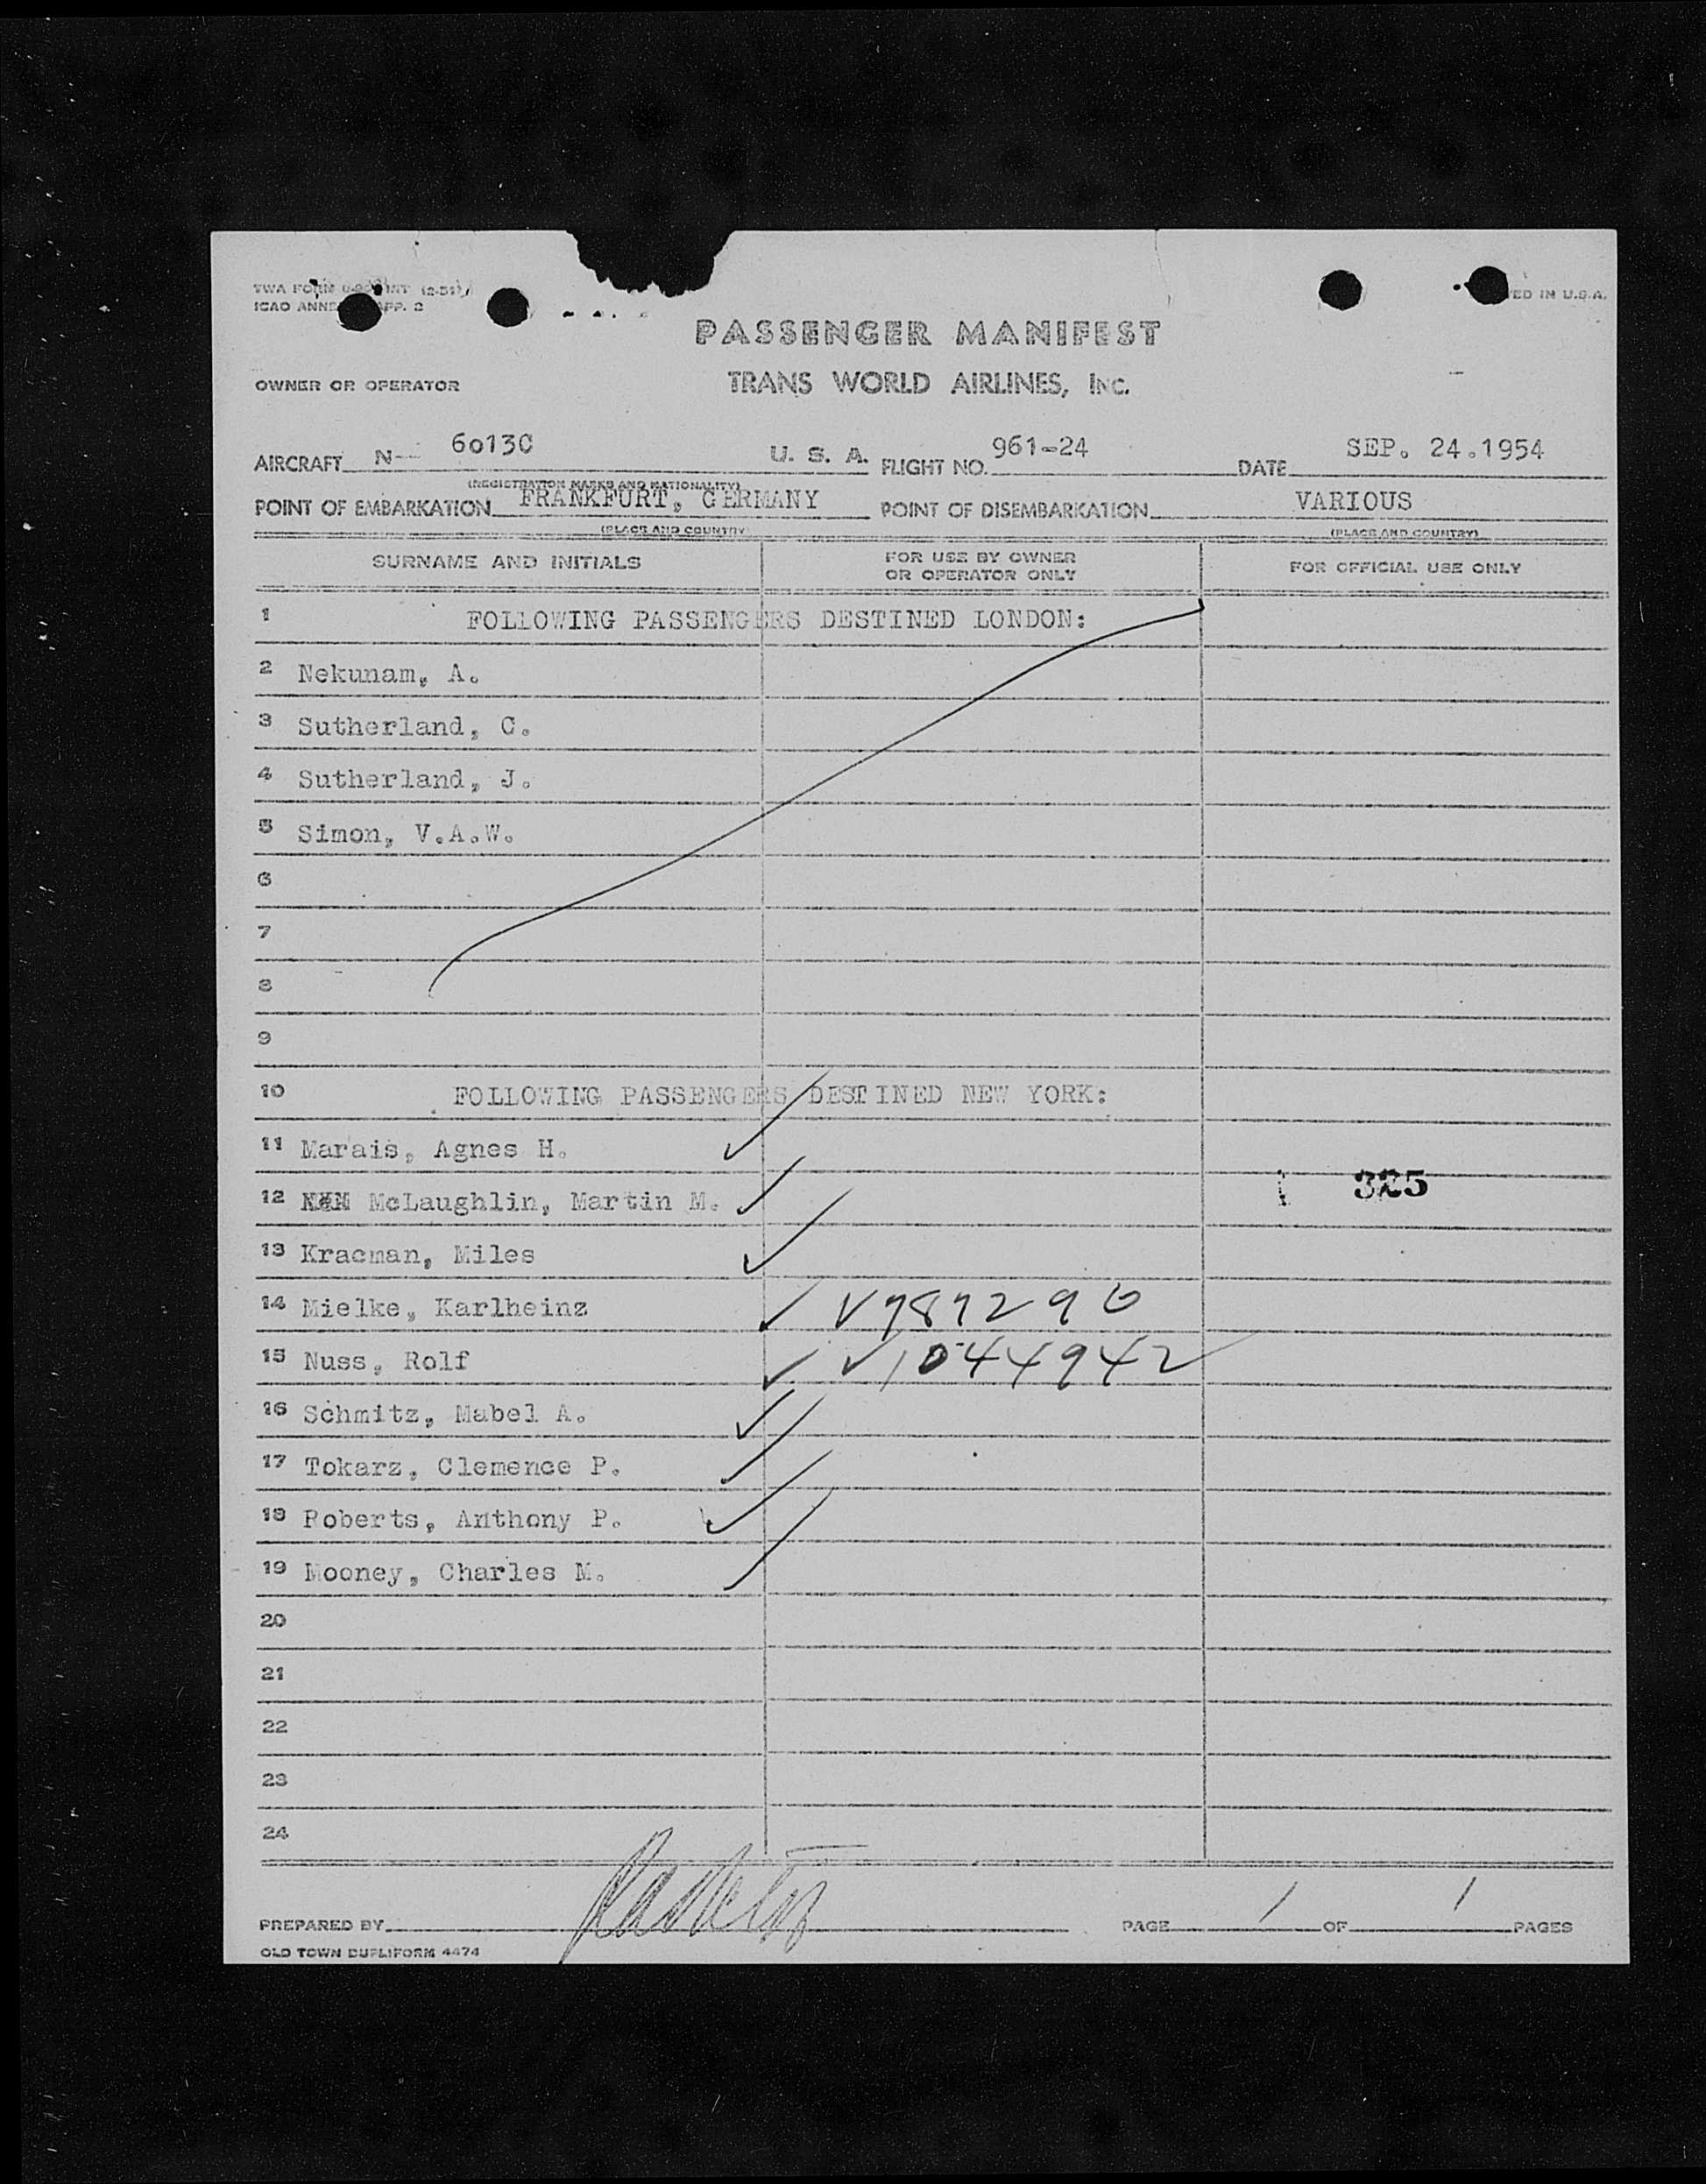 TWA FORM
ICAO ANNE APP. 2
ED IN U.S.A.
PASSENGER MANIFEST
OWNER OR OPERATOR TRANS WORLD AIRLINES, INC.
AIRCRAFT N- 6013C U. S. A. FLIGHT NO. 961-24 DATE SEP. 24.1954
(REGISTRATION MARKS AND NATIONALITY)
POINT OF EMBARKATION FRANKFURT, GERMANY POINT OF DISEMBARKATION VARIOUS
(PLACE AND COUNTRY) (PLACE AND COUNTRY)
SURNAME AND INITIALS FOR USE BY OWNER OR OPERATOR ONLY FOR OFFICIAL USE ONLY
1 FOLLOWING PASSENGERS DESTINED LONDON:
2 Nekunam, A.
3 Sutherland, C.
4 Sutherland, J.
5 Simon, V.A.W.
6
7
8
9
10 FOLLOWING PASSENGERS DESTINED NEW YORK:
11 Marais, Agnes H. ✓
12 McLaughlin, Martin M. ✓ 325
13 Kracman, Miles ✓
14 Mielke, Karlheinz ✓ V989296
15 Nuss, Rolf ✓ V1044942
16 Schmitz, Mabel A. ✓
17 Tokarz, Clemence P. ✓
18 Roberts, Anthony P. ✓
19 Mooney, Charles M. ✓
20
21
22
23
24
PREPARED BY PAGE 1 OF 1 PAGES
OLD TOWN DUPLIFORM 4474